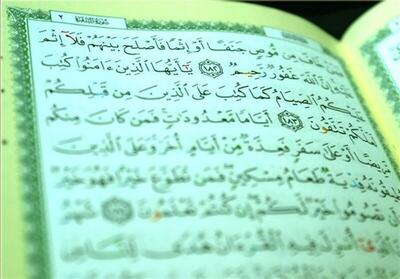 سُورَةُ البَقَرَةِ ٢
خَافَ مِن مُّوصٍ جَنَفًا أَوْ إِثْمًا فَأَصْلَحَ بَيْنَهُمْ فَلَآ إِثْمَ
عَلَيْهِ إِنَّ ٱللَّهَ غَفُورٌ رَّحِيمٌ ١٨٢ يَٰٓأَيُّهَا ٱلَّذِينَ ءَامَنُوا۟ كُتِبَ
عَلَيْكُمُ ٱلصِّيَامُ كَمَا كُتِبَ عَلَى ٱلَّذِينَ مِن قَبْلِكُمْ
لَعَلَّكُمْ تَتَّقُونَ ١٨٣ أَيَّامًا مَّعْدُودَٰتٍ فَمَن كَانَ مِنكُم
مَّرِيضًا أَوْ عَلَىٰ سَفَرٍ فَعِدَّةٌ مِّنْ أَيَّامٍ أُخَرَ وَعَلَى ٱلَّذِينَ
يُطِيقُونَهُۥ فِدْيَةٌ طَعَامُ مِسْكِينٍ فَمَن تَطَوَّعَ خَيْرًا فَهُوَ خَيْرٌ
وَأَن تَصُومُوا۟ خَيْرٌ لَّكُمْ إِن كُنتُمْ تَعْلَمُونَ ١٨٤ شَهْرُ
ٱلَّذِىٓ أُنزِلَ فِيهِ ٱلْقُرْءَانُ هُدًى لِّلنَّاسِ